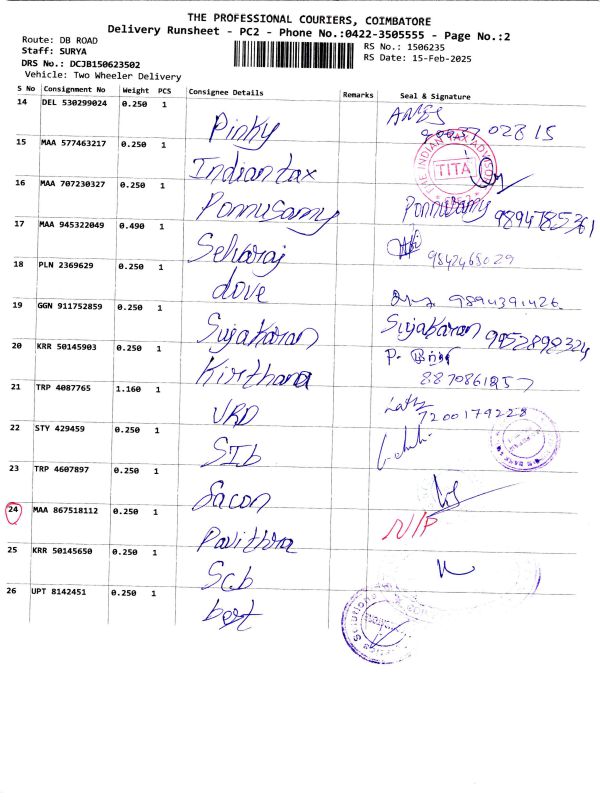 THE PROFESSIONAL COURIERS, COIMBATORE
Delivery Runsheet - PC2 - Phone No.:0422-3505555 - Page No.:2
Route: DB ROAD
RS No.: 1506235
Staff: SURYA
RS Date: 15-Feb-2025
DRS No.: DCJB150623502
Vehicle: Two Wheeler Delivery
S No Consignment No Weight PCS Consignee Details Remarks Seal & Signature
14 DEL 530299024 0.250 1 Pinky
02815
15 MAA 577463217 0.250 1 Indian tax
THE INDIAN TAX ADVISOR
TITA
16 MAA 707230327 0.250 1 Ponnusamy Ponnusamy 9894785361
17 MAA 945322049 0.490 1 Selvaraj 9842468029
18 PLN 2369629 0.250 1 dove 9894391426
19 GGN 911752859 0.250 1 Sujakaran Sujakaran 9952898324
20 KRR 50145903 0.250 1 Kirthana P.
8870861257
21 TRP 4087765 1.160 1 URD
7200179228
22 STY 429459 0.250 1 STb
23 TRP 4607897 0.250 1 Sacon
24 MAA 867518112 0.250 1 Pavithra N/P
25 KRR 50145650 0.250 1 Scb
26 UPT 8142451 0.250 1 best